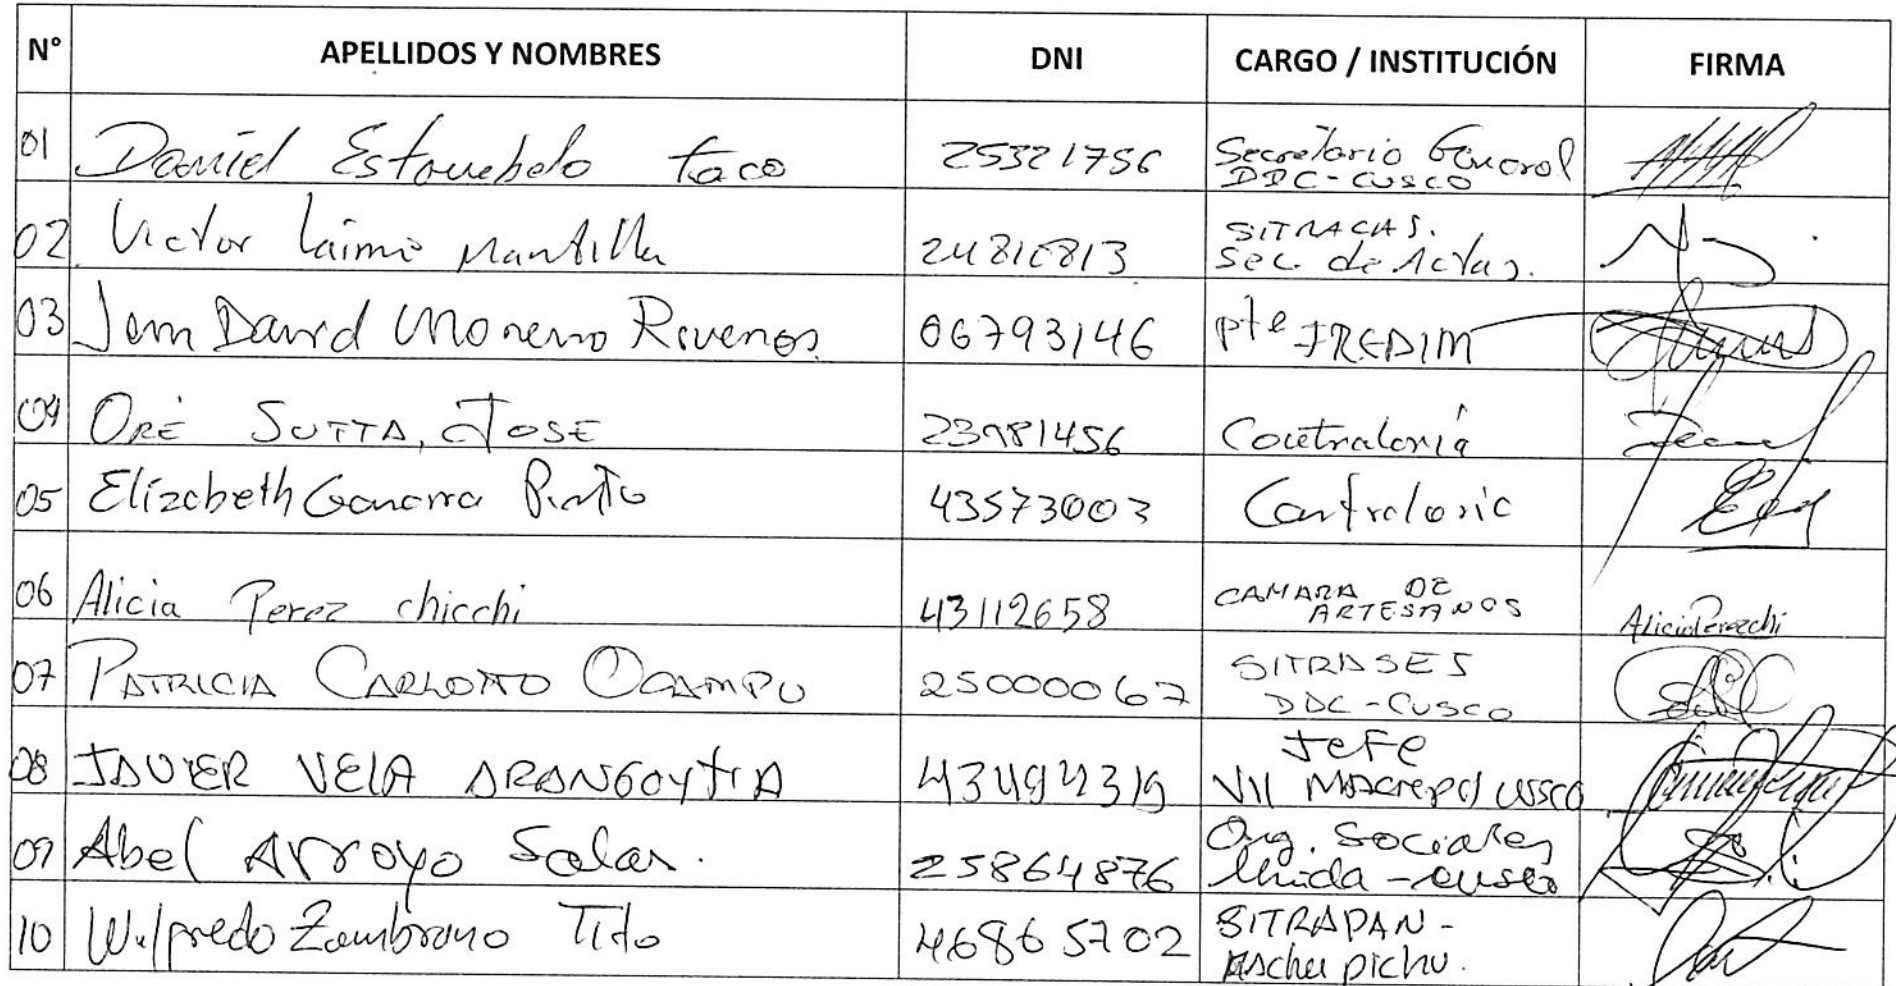 N° APELLIDOS Y NOMBRES DNI CARGO / INSTITUCIÓN FIRMA
01 Daniel Taco 25321756 Secretario General
DDC-CUSCO
02 Victor Jaime Mantilla SITRACAS.
Sec. de Actas.
03 David Moreno 06793146 pte FREDIM
04 ORÉ SUTTA, JOSE 23981456 Contraloría
05 Elizabeth Pinto 43573003 Contraloria
06 Alicia Perez chicchi 43112658 CAMARA DE
ARTESANOS
07 PATRICIA CARLOTTO OCAMPO 25000067 SITRASES
DDC-CUSCO
08 JAVIER VELA ARANGOYTIA 43494319 Jefe
VII
09 Abel Arroyo Salas. 25864876 Org. Sociales
Unida - cusco
10 Wilfredo Zambrano Tito 46865702 SITRAPAN-
pichu.